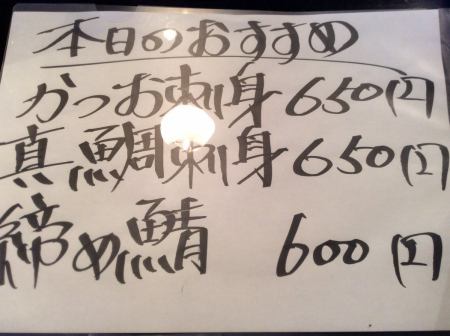 本日のおすすめ
かつお刺身 650円
真鯛刺身 650円
締め鯖 600円